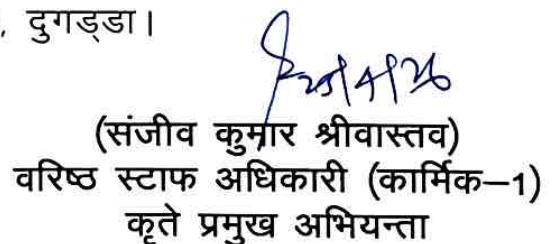 , दुगड्डा।
(संजीव कुमार श्रीवास्तव)
वरिष्ठ स्टाफ अधिकारी (कार्मिक–1)
कृते प्रमुख अभियन्ता